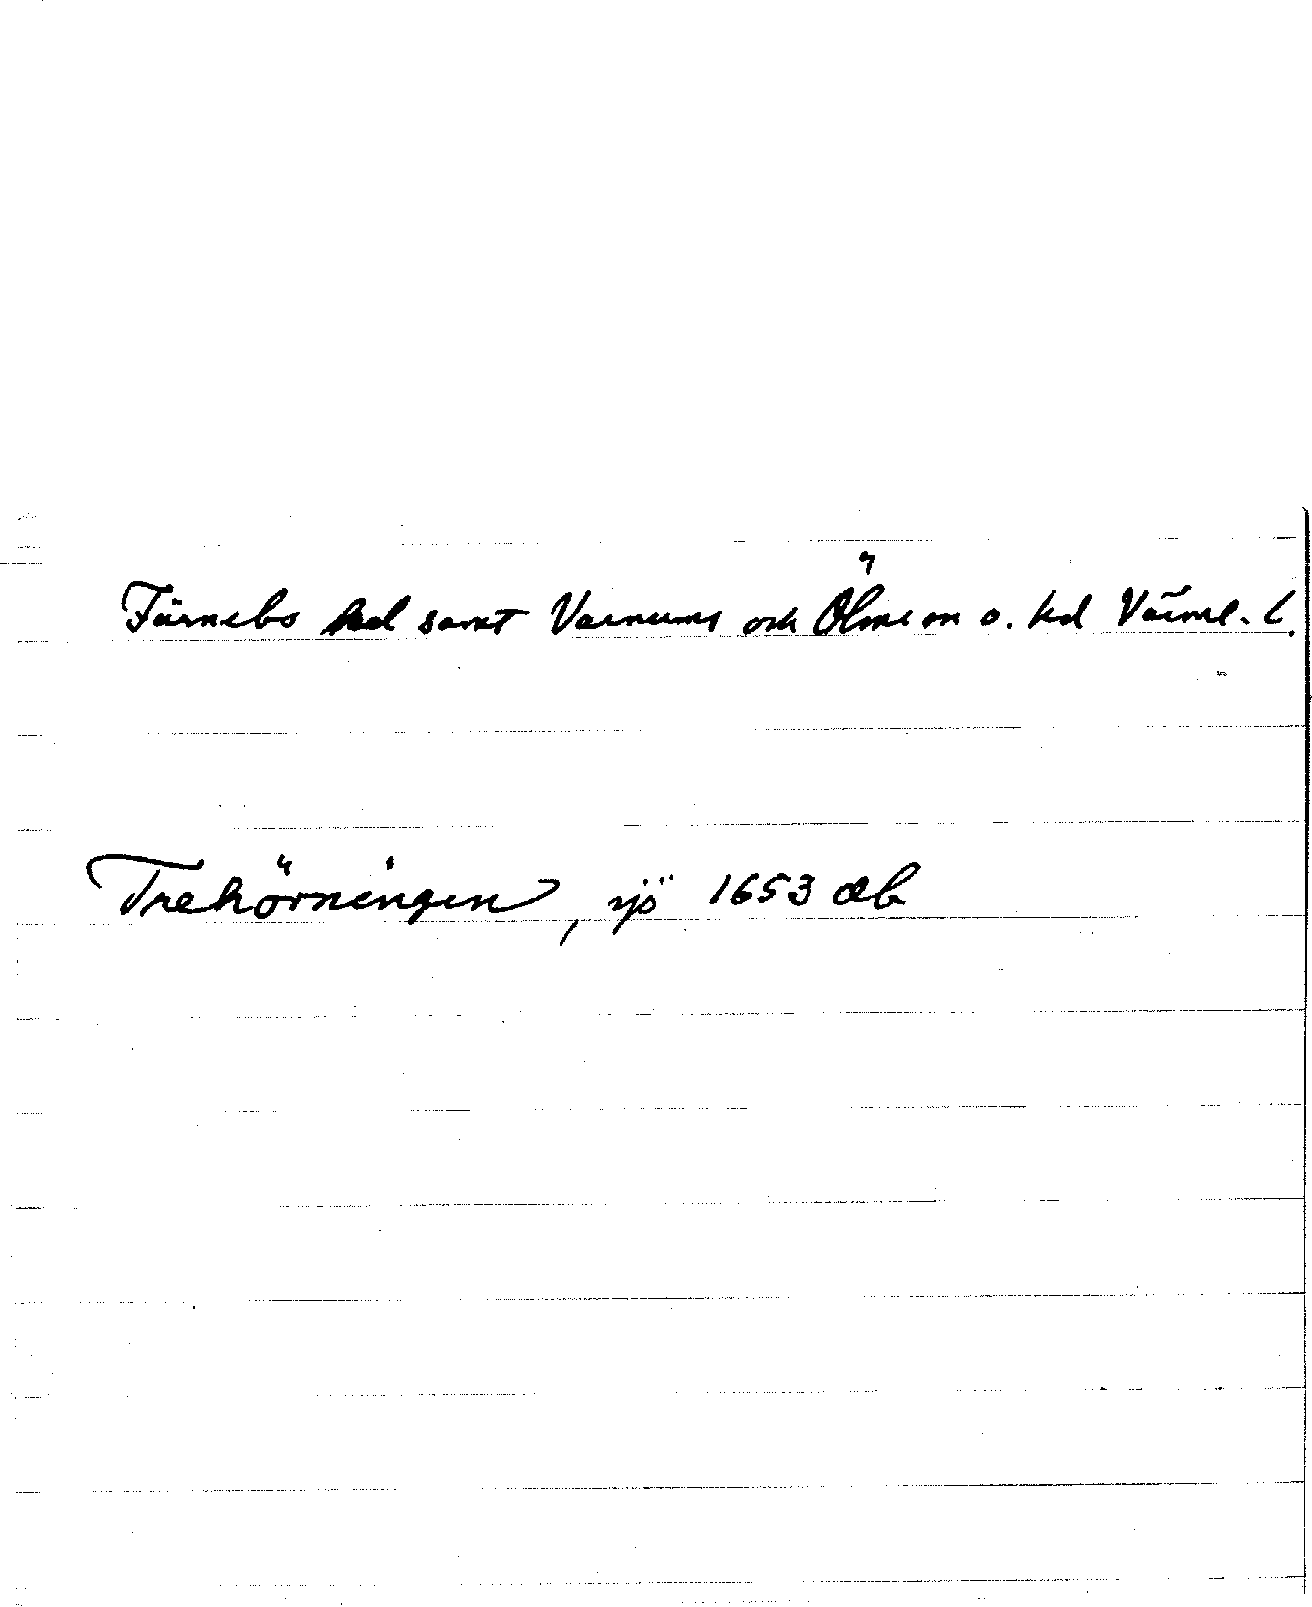 Färnebo hd samt Varnums och Ölme sn o. hd Värml. l.
Trehörningen, sjö 1653 db